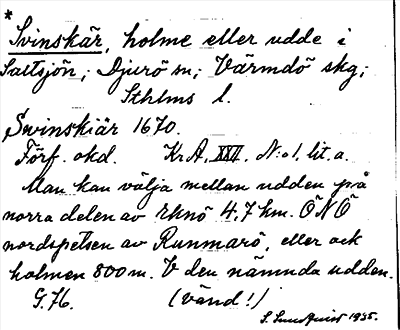 *
Svinskär, holme eller udde i
Saltsjön; Djurö sn; Värmdö skg;
Sthlms l.
Swinskiär 1670.
Förf. okd. Kr.A. XXVI. N:o 1. lit. a.
Man kan välja mellan udden på
norra delen av Eknö 4,7 km. ÖNÖ
nordspetsen av Runmarö, eller ock
holmen 800 m. V den nämnda udden.
G. 76. (vänd!)
S. Sundqvist 1935.